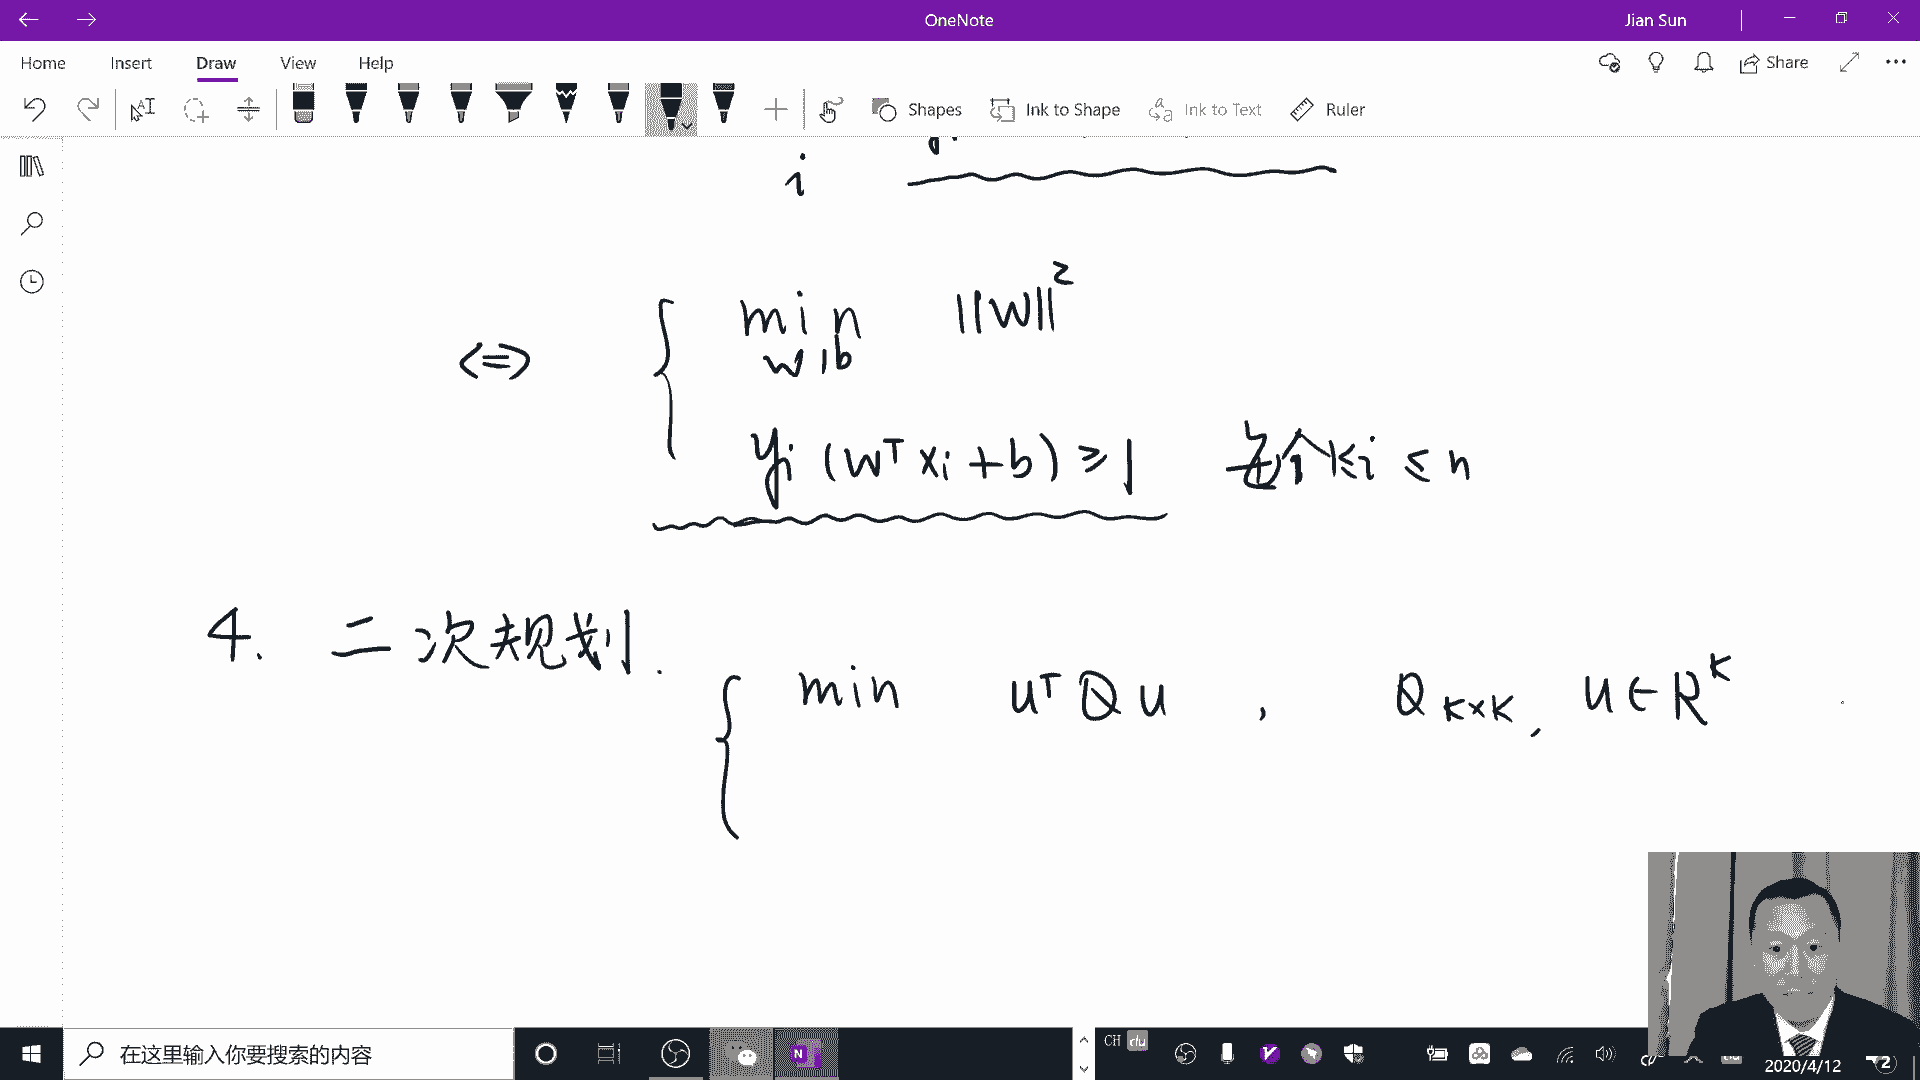 OneNote
Jian Sun
Home Insert Draw View Help
Share
Shapes Ink to Shape Ink to Text Ruler
i
<=> { min ||W||²
w, b
yi (wᵀ xi + b) ≥ 1 每个 1≤i ≤ n
4. 二次规划.
{ min uᵀ Q u , Q K×K, u ∈ R^K
在这里输入你要搜索的内容
CH
2020/4/12
2